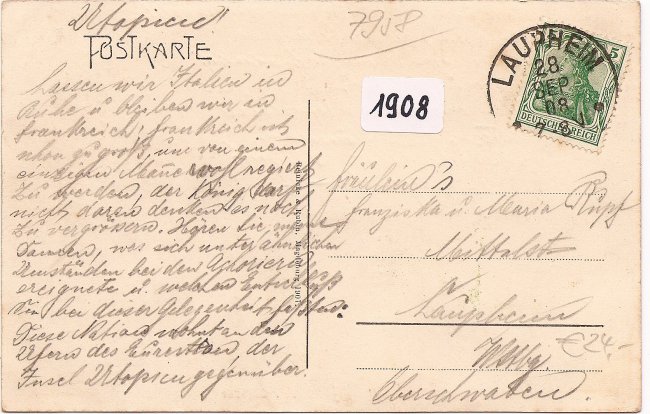 Utopien!
POSTKARTE
7958
LAUPHEIM
28
SEP
08
5
DEUTSCHES REICH
1908
Lassen wir Italien in
Ruhe u bleiben wir in
Frankreich, Frankreich ist
schon zu groß um von einem
einzigen Manne wohl regiert
zu werden, der König darf
nicht daran denken es noch
zu vergrößern. Hören Sie meine
Damen, was sich unter ähnlichen
Umständen bei den
ereignete u. welchen Entschluß
Sie bei dieser Gelegenheit faßten.
Diese Nation wohnt an den
Ufern des der
Insel Utopien gegenüber.
Fräulein's
Franziska u. Maria Rupf
Mittelst
Laupheim
Wttbg.
Oberschwaben.
€24.-